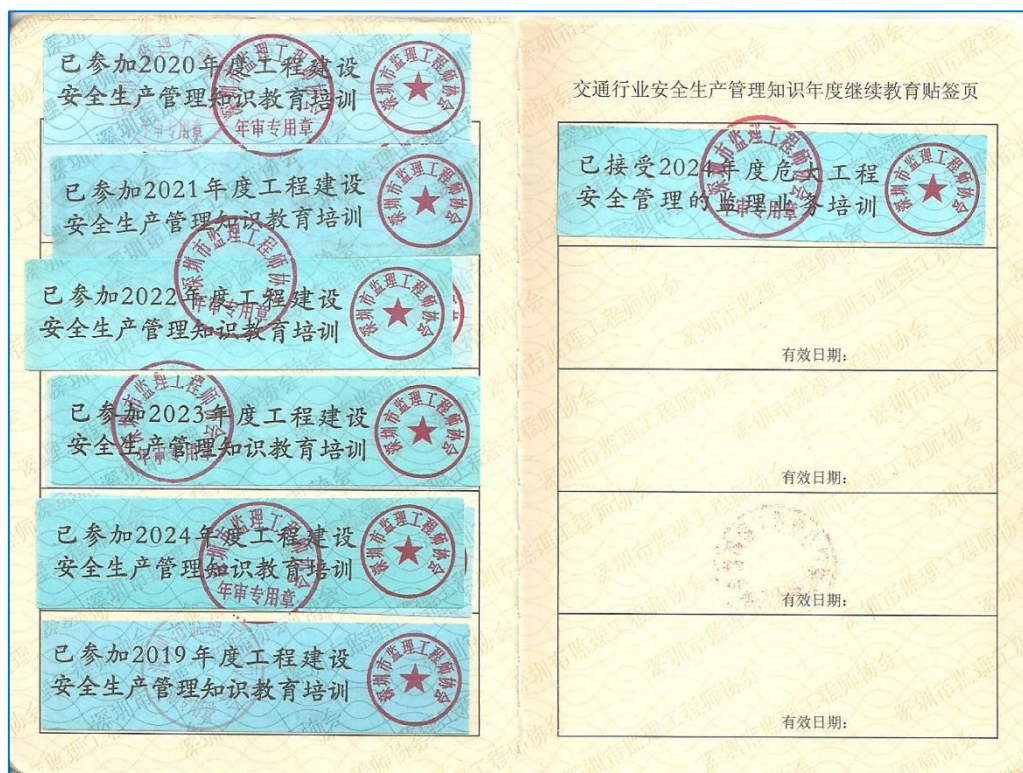 已参加2020年度工程建设
安全生产管理知识教育培训
深圳市监理工程师协会
年审专用章
深圳市监理工程师协会
已参加2021年度工程建设
安全生产管理知识教育培训
深圳市监理工程师协会
已参加2022年度工程建设
安全生产管理知识教育培训
深圳市监理工程师协会
年审专用章
深圳市监理工程师协会
已参加2023年度工程建设
安全生产管理知识教育培训
深圳市监理工程师协会
年审专用章
深圳市监理工程师协会
已参加2024年度工程建设
安全生产管理知识教育培训
深圳市监理工程师协会
年审专用章
深圳市监理工程师协会
已参加2019年度工程建设
安全生产管理知识教育培训
深圳市监理工程师协会
交通行业安全生产管理知识年度继续教育贴签页
已接受2024年度危大工程
安全管理的监理业务培训
深圳市监理工程师协会
年审专用章
深圳市监理工程师协会
有效日期:
有效日期:
有效日期:
有效日期: